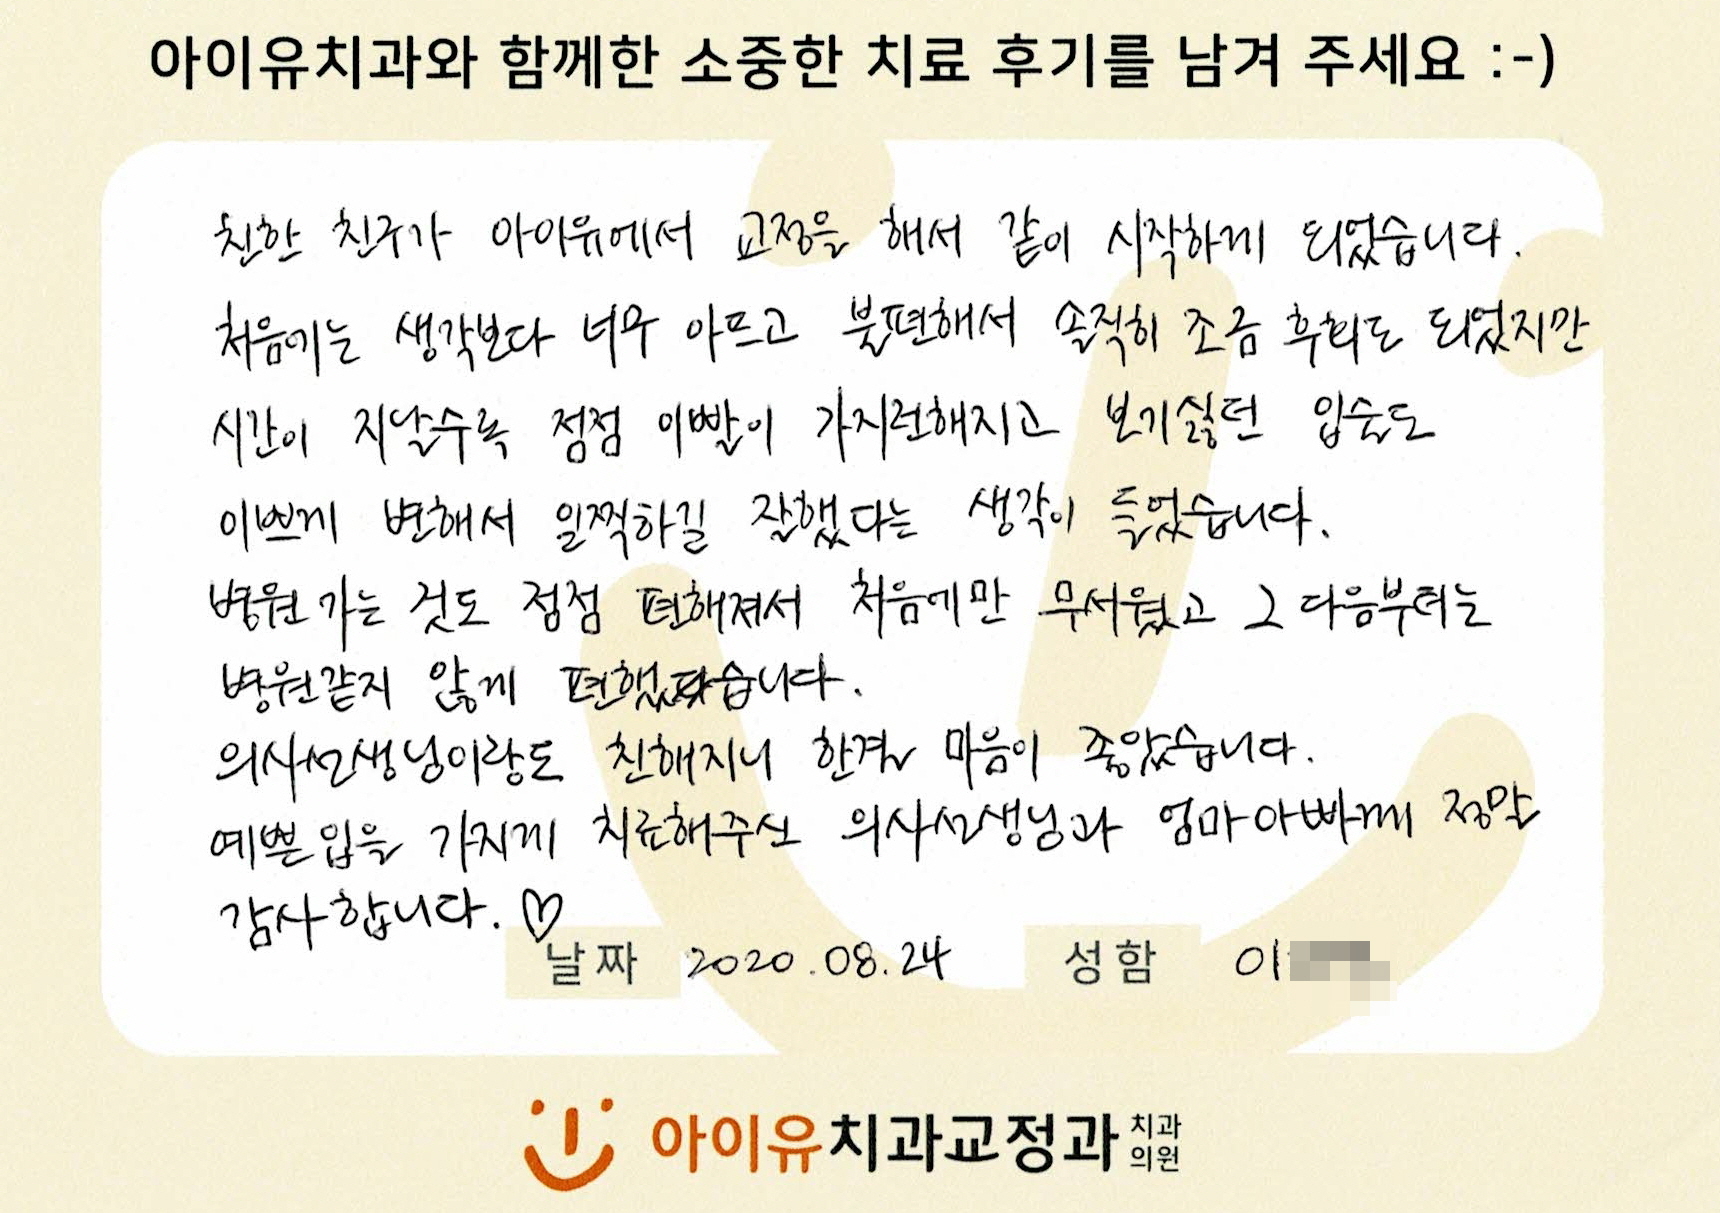 아이유치과와 함께한 소중한 치료 후기를 남겨 주세요 :-)
친한 친구가 아이유에서 교정을 해서 같이 시작하게 되었습니다.
처음에는 생각보다 너무 아프고 불편해서 솔직히 조금 후회도 되었지만
시간이 지날수록 점점 이빨이 가지런해지고 보기싫던 입술도
이쁘게 변해서 일찍하길 잘했다는 생각이 들었습니다.
병원 가는 것도 점점 편해져서 처음에만 무서웠고 그 다음부터는
병원같지 않게 편했습니다.
의사선생님이랑도 친해지니 한결 마음이 좋았습니다.
예쁜 입을 가지게 치료해주신 의사선생님과 엄마아빠께 정말
감사합니다. ♡
날짜 2020.08.24 성함 이
아이유치과교정과 치과
의원